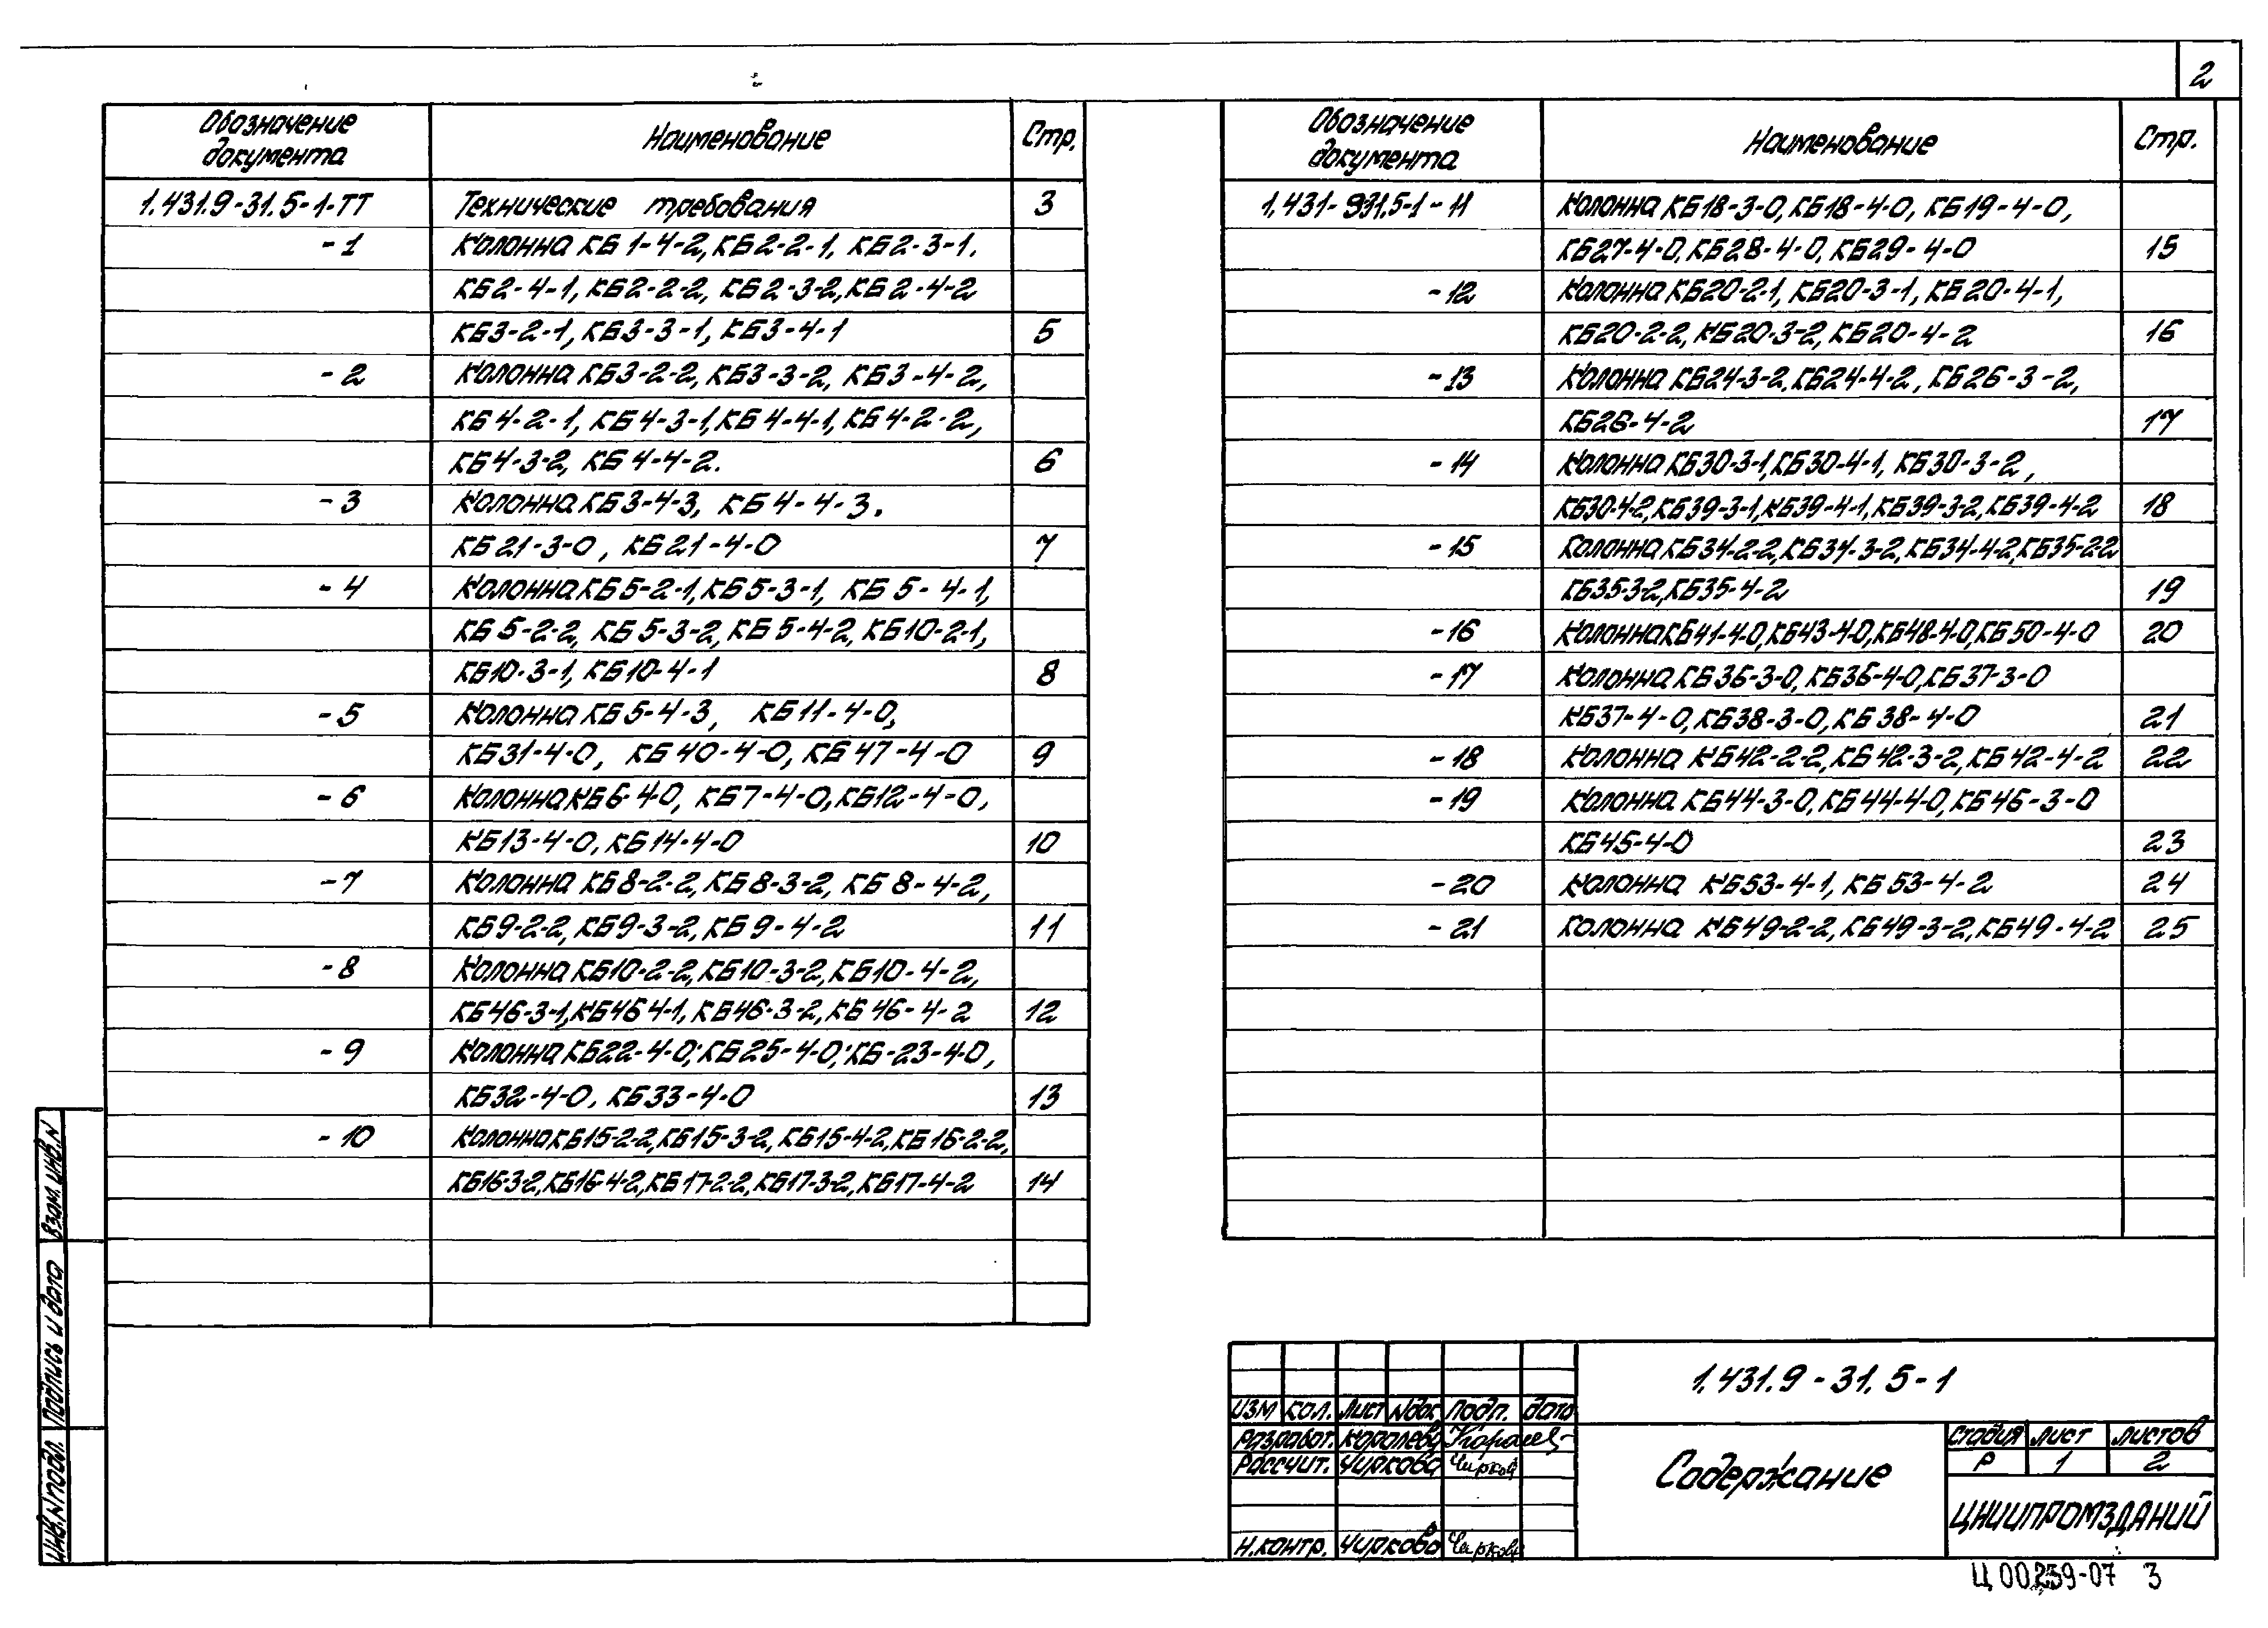 2
Обозначение документа Наименование Стр.
1.431.9-31.5-1-ТТ Технические требования 3
-1 Колонна КБ1-4-2, КБ2-2-1, КБ2-3-1.
КБ2-4-1, КБ2-2-2, КБ2-3-2, КБ2-4-2
КБ3-2-1, КБ3-3-1, КБ3-4-1 5
-2 Колонна КБ3-2-2, КБ3-3-2, КБ3-4-2,
КБ4-2-1, КБ4-3-1, КБ4-4-1, КБ4-2-2,
КБ4-3-2, КБ4-4-2. 6
-3 Колонна КБ3-4-3, КБ4-4-3.
КБ21-3-0, КБ21-4-0 7
-4 Колонна КБ5-2-1, КБ5-3-1, КБ5-4-1,
КБ5-2-2, КБ5-3-2, КБ5-4-2, КБ10-2-1,
КБ10-3-1, КБ10-4-1 8
-5 Колонна КБ5-4-3, КБ11-4-0,
КБ31-4-0, КБ40-4-0, КБ47-4-0 9
-6 Колонна КБ6-4-0, КБ7-4-0, КБ12-4-0,
КБ13-4-0, КБ14-4-0 10
-7 Колонна КБ8-2-2, КБ8-3-2, КБ8-4-2,
КБ9-2-2, КБ9-3-2, КБ9-4-2 11
-8 Колонна КБ10-2-2, КБ10-3-2, КБ10-4-2,
КБ46-3-1, КБ46 4-1, КБ46-3-2, КБ46-4-2 12
-9 Колонна КБ22-4-0; КБ25-4-0; КБ-23-4-0,
КБ32-4-0, КБ33-4-0 13
-10 Колонна КБ15-2-2, КБ15-3-2, КБ15-4-2, КБ16-2-2,
КБ16-3-2, КБ16-4-2, КБ17-2-2, КБ17-3-2, КБ17-4-2 14
Обозначение документа Наименование Стр.
1.431-931.5-1-11 Колонна КБ18-3-0, КБ18-4-0, КБ19-4-0,
КБ27-4-0, КБ28-4-0, КБ29-4-0 15
-12 Колонна КБ20-2-1, КБ20-3-1, КБ20-4-1,
КБ20-2-2, КБ20-3-2, КБ20-4-2 16
-13 Колонна КБ24-3-2, КБ24-4-2, КБ26-3-2,
КБ26-4-2 17
-14 Колонна КБ30-3-1, КБ30-4-1, КБ30-3-2,
КБ30-4-2, КБ39-3-1, КБ39-4-1, КБ39-3-2, КБ39-4-2 18
-15 Колонна КБ34-2-2, КБ34-3-2, КБ34-4-2, КБ35-2-2
КБ35-3-2, КБ35-4-2 19
-16 Колонна КБ41-4-0, КБ43-4-0, КБ48-4-0, КБ50-4-0 20
-17 Колонна КБ36-3-0, КБ36-4-0, КБ37-3-0
КБ37-4-0, КБ38-3-0, КБ38-4-0 21
-18 Колонна КБ42-2-2, КБ42-3-2, КБ42-4-2 22
-19 Колонна КБ44-3-0, КБ44-4-0, КБ45-3-0
КБ45-4-0 23
-20 Колонна КБ53-4-1, КБ53-4-2 24
-21 Колонна КБ49-2-2, КБ49-3-2, КБ49-4-2 25
Взам. инв. N
Подпись и дата
Инв. N подл.
1.431.9-31.5-1
Изм Кол. Лист Nдок Подп. Дата
Разработ. Королева Королев
Рассчит. Чиркова Чирков
Н.контр. Чиркова Чирков
Содержание
Стадия Лист Листов
Р 1 2
ЦНИИПРОМЗДАНИЙ
Ц00259-07 3